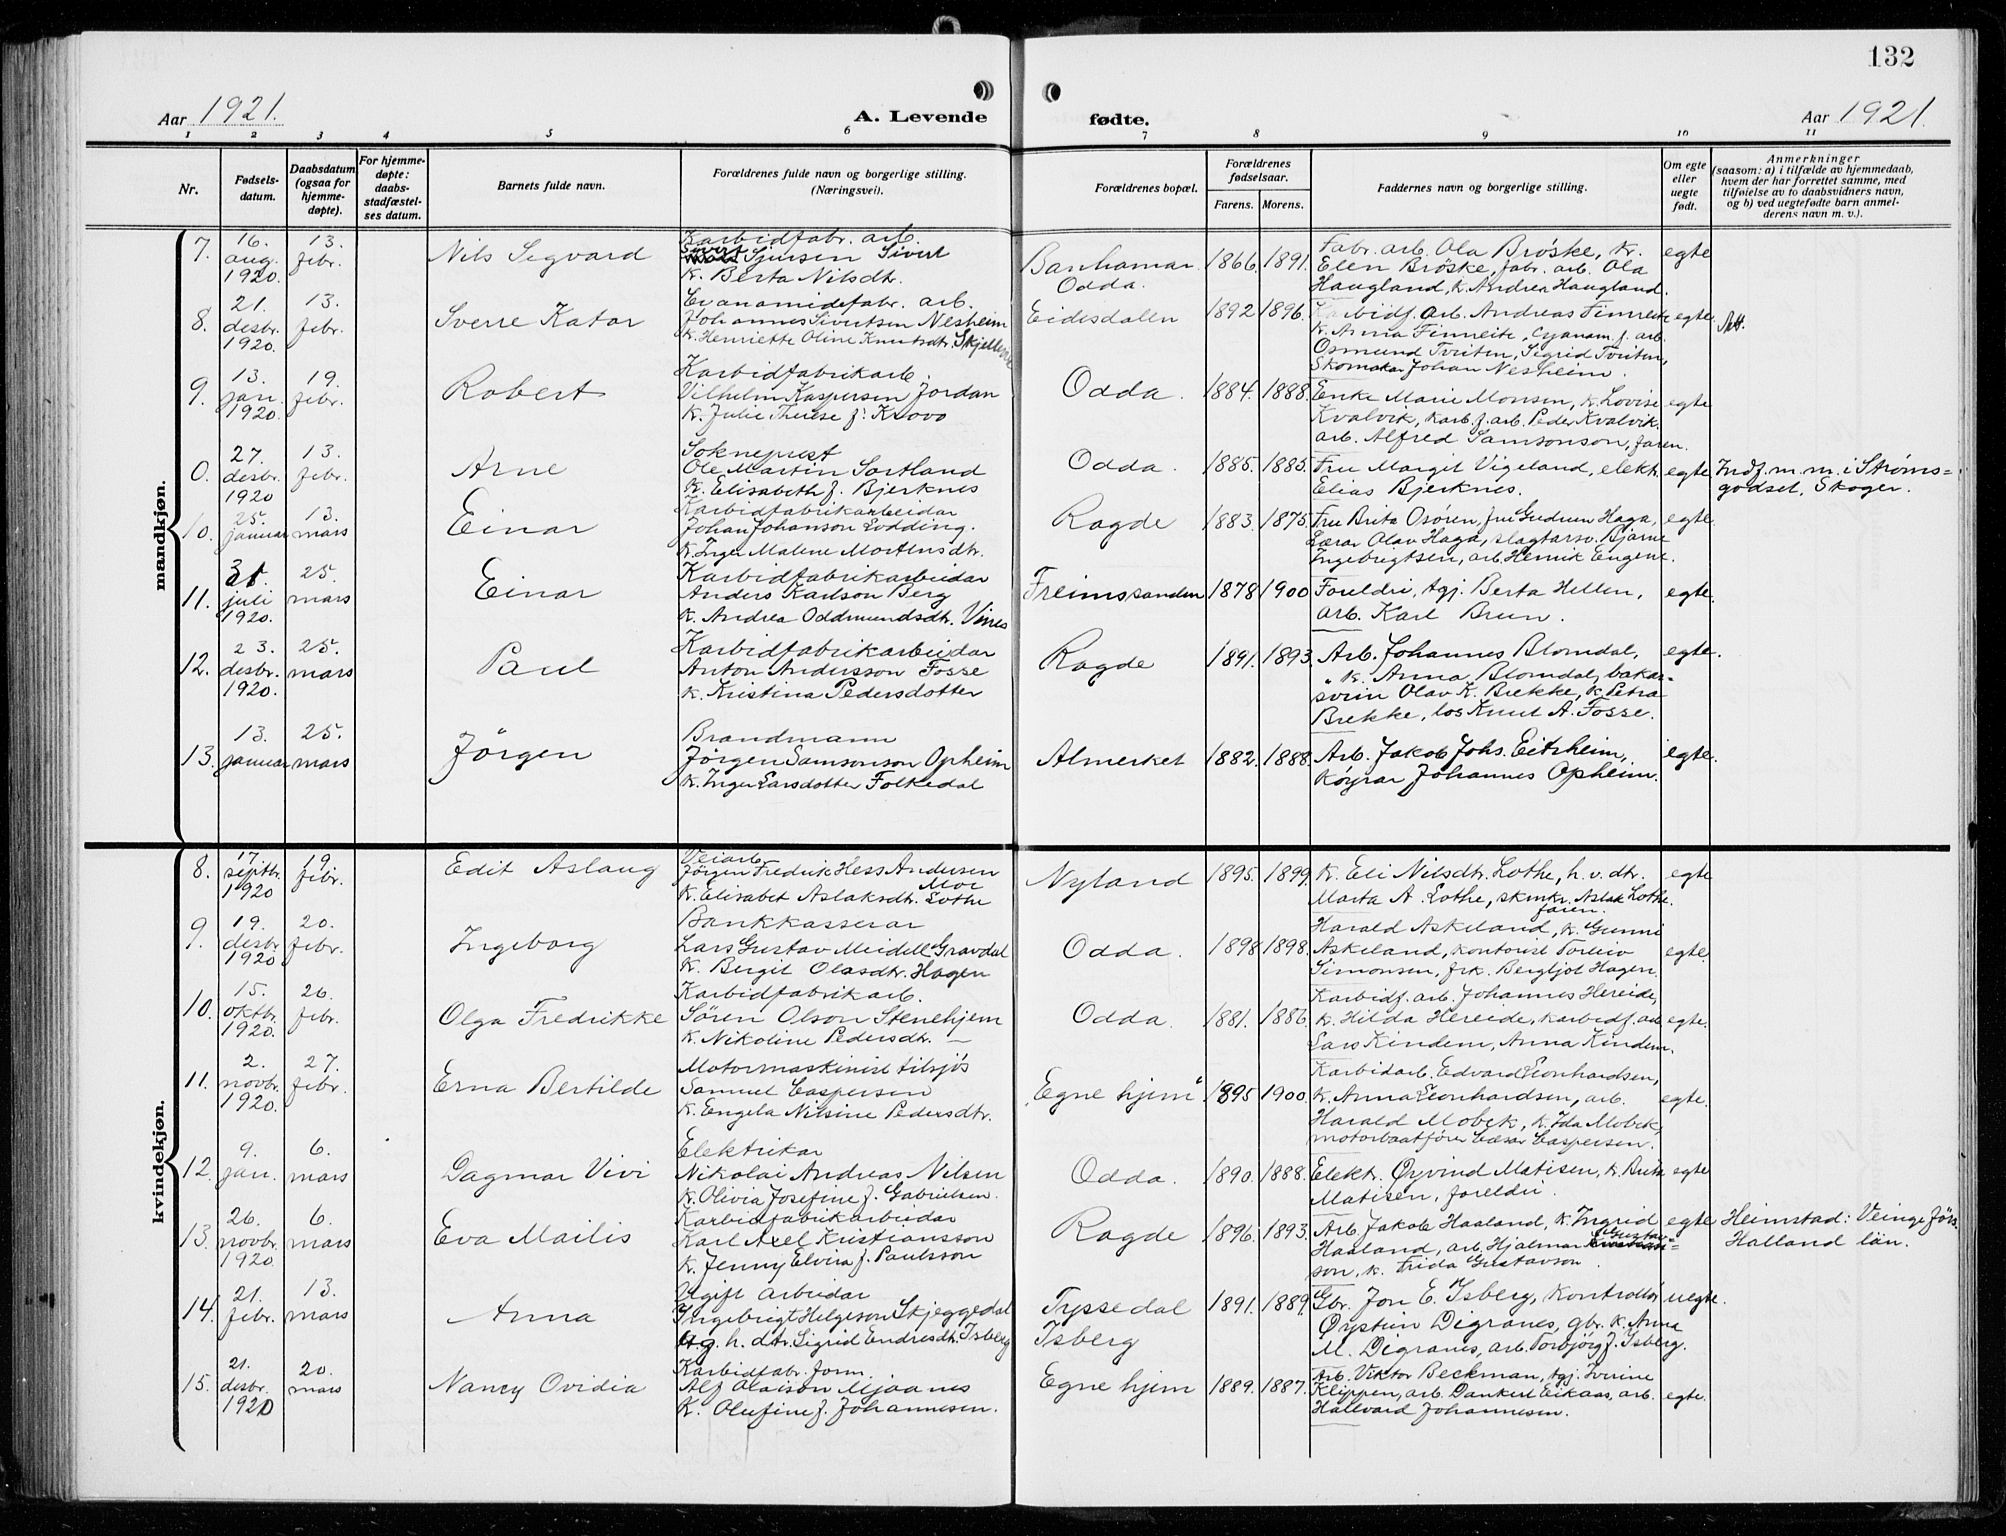 132
Aar 1921.
A. Levende
fødte.
Aar 1921.
1 2 3 4 5 6 7 8 9 10 11
Nr.
Fødsels-
datum.
Daabsdatum
(ogsaa for
hjemme-
døpte).
For hjemme-
døpte:
daabs-
stadfæstel-
ses datum.
Barnets fulde navn.
Forældrenes fulde navn og borgerlige stilling.
(Næringsvei).
Forældrenes bopæl.
Forældrenes
fødselsaar.
Farens. Morens.
Faddernes navn og borgerlige stilling.
Om egte
eller
uegte
født.
Anmerkninger
(saasom: a) i tilfælde av hjemmedaab,
hvem der har forrettet samme, med
tilføielse av to daabsvidners navn,
og b) ved uegtefødte barn anmel-
derens navn m. v.).
mandkjøn.
7.
16.
aug.
1920.
13.
febr.
Nils Segvard
Karbidfabr. arb.
Sjursen Sivert
k. Berta Nilsdtr.
Banhamar
Odda.
1866. 1891.
Fabr. arb. Ola Brøske, k.
Elen Brøske, fabr. arb. Ola
Haugland, k. Andrea Haugland.
egte
8.
21.
desbr.
1920.
13.
febr.
Sverre Kator
Cyanamidfabr. arb.
Johannes Sivertsen Nesheim
k. Henriette Oline Knutsdtr.
Eidesdalen
1892 1896.
Karbidf. arb. Andreas Finneite
k. Anna Finneite, Cyanam. f. arb.
Osmund Tveiten, Sigrid Tveiten,
Skomakar Johan Nesheim.
egte.
Att.
9.
13.
jan.
1920.
19.
febr.
Robert
Karbidfabrikarb.
Vilhelm Kaspersen Jordan
k. Julie Therese f. Krovo
Odda.
1884. 1888.
Enke Marie Monsen, k. Lovise
Kvalvik, karb. f. arb. Peder Kvalvik
arb. Alfred Samsonson, faren.
egte
0.
27.
desbr.
1920
13.
febr.
Arne
Sokneprest
Ole Martin Sortland
k. Elisabeth f. Bjerknes
Odda.
1885. 1885.
Fru Margit Vigeland, elekt.
Elias Bjerknes.
egte
Indf. m. m. i Strøms-
godset, Skoger.
10.
25.
januar
13.
mars
Einar
Karbidfabrikarbeidar
Johan Johanson Lodding.
k. Inger Malene Mortensdtr.
Ragde
1883. 1875.
Fru Brita Osøren, fru Gudrun Haga,
Lærar Olav Haga, slagtarsv. Bjarne
Ingebrigtsen, arb. Henrik Engene.
egte.
11.
31.
juli
1920.
25.
mars
Einar
Karbidfabrikarbeidar
Anders Karlson Berg
k. Andrea Oddmundsdtr. Vines
Freimssanden
1878 1900
Foreldri, tgj. Berta Hellen,
arb. Karl Brun.
egte.
12.
23.
desbr.
1920.
25.
mars
Paul
Karbidfabrikarbeidar
Anton Andersson Fosse
k. Kristina Pedersdotter
Ragde
1891. 1893.
Arb. Johannes Blomdal,
k. Anna Blomdal, bakar-
svein Olav K. Brekke, k. Petra
Brekke, los Knut A. Fosse.
egte.
13.
13.
januar
25.
mars
Jørgen
Brandmann
Jørgen Samsonson Opheim
k. Inger Larsdotter Folkedal
Almerket
1882. 1888.
Arb. Jakob Johs. Eitrheim,
køyrar Johannes Opheim.
egte.
kvindekjøn.
8.
17.
septbr.
1920
19.
febr.
Edit Aslaug
Veiarb.
Jørgen Fredrik Hess Andersen
Moe
k. Elisabet Aslaksdtr. Lothe
Nyland
1895. 1899.
k. Eli Nilsdtr. Lothe, h. v. dtr.
Marta A. Lothe, Aslak Lothe.
faren.
egte
9.
19.
desbr.
1920
20.
febr.
Ingeborg
Bankkasserar
Lars Gustav Meidell Gravdal
k. Bergit Olasdtr. Hagen
Odda.
1898 1898.
Harald Askeland, k. Gunni
Askeland, kontorist Torleiv
Simonsen, frk. Bergljot Hagen.
egte.
10.
15.
oktbr.
1920.
26.
febr.
Olga Fredrikke
Karbidfabrikarb.
Søren Olson Stenehjem
k. Nikoline Pedersdtr. —
Odda.
1881. 1886.
Karbidf. arb. Johannes Hereide,
k. Hilda Hereide, karbidf. arb.
Lars Kindem, Anna Kindem.
egte.
11.
2.
novbr.
1920.
27.
febr.
Erna Bertilde
Motormaskinist tilsjøs
Samuel Caspersen
k. Engela Nilsine Pedersdtr.
„Egne hjem“
1895 1900.
Karbidarb. Edvard Leonhardsen,
k. Anna Leonhardsen, arb.
Harald Mobek, k. Ida Mobek,
motorbaatfører Cæsar Caspersen.
egte.
12.
9.
jan.
6.
mars
Dagmar Vivi
Elektrikar
Nikolai Andreas Nilsen
k. Olivia Josefine f. Gabrielsen.
Odda.
1890. 1888.
Elekt. Øyvind Matisen, k. Brita
Matisen, foreldri.
egte
13.
26.
novbr.
1920.
6.
mars
Eva Mailis
Karbidfabrikarbeidar
Karl Axel Kristiansson
k. Jenny Elvira f. Paulsson
Ragde
1896. 1893.
Arb. Jakob Haaland, k. Ingrid
Haaland, arb. Hjalmar Gustav-
son, k. Frida Gustavson.
egte
Heimstad: Veinge
Halland län.
14.
21.
febr.
13.
mars
Anna
Ugift arbeidar
Ingebrigt Helgeson Skjeggedal
ug. h. dtr. Sigrid Endresdtr. Isberg
Tyssedal
Isberg
1891. 1889.
Gbr. Jon E. Isberg, kontrollør
Øystein Digranes, gbr. k. Anna
M. Digranes, arb. Torbjørg J. Isberg.
uegte.
15.
21.
desbr.
1920
20.
mars
Nancy Ovidia
Karbidfabr. form.
Alf Olaison Mjaanes
k. Olufine f. Johannesen.
Egne hjem
1889. 1887.
Arb. Viktor Beckman, tgj. Ivrine
Klippen, arb. Dankert Eikaas, arb.
Hallvard Johannesen.
egte.